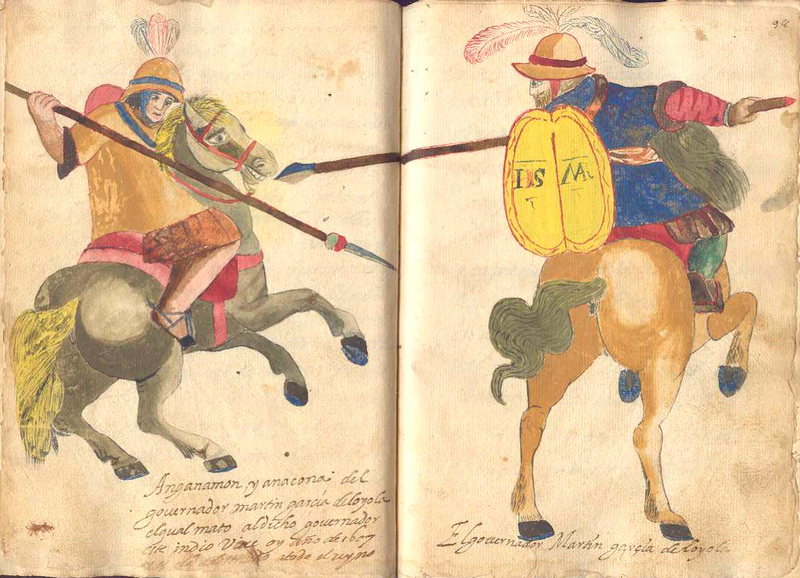 Anganamon yanacona del
governador martin garcia de loyola
el qual mato al dicho governador
este indio Vive oy año de 1607
todo el reyno
El governador Martin garcia de loyola
IHS MA